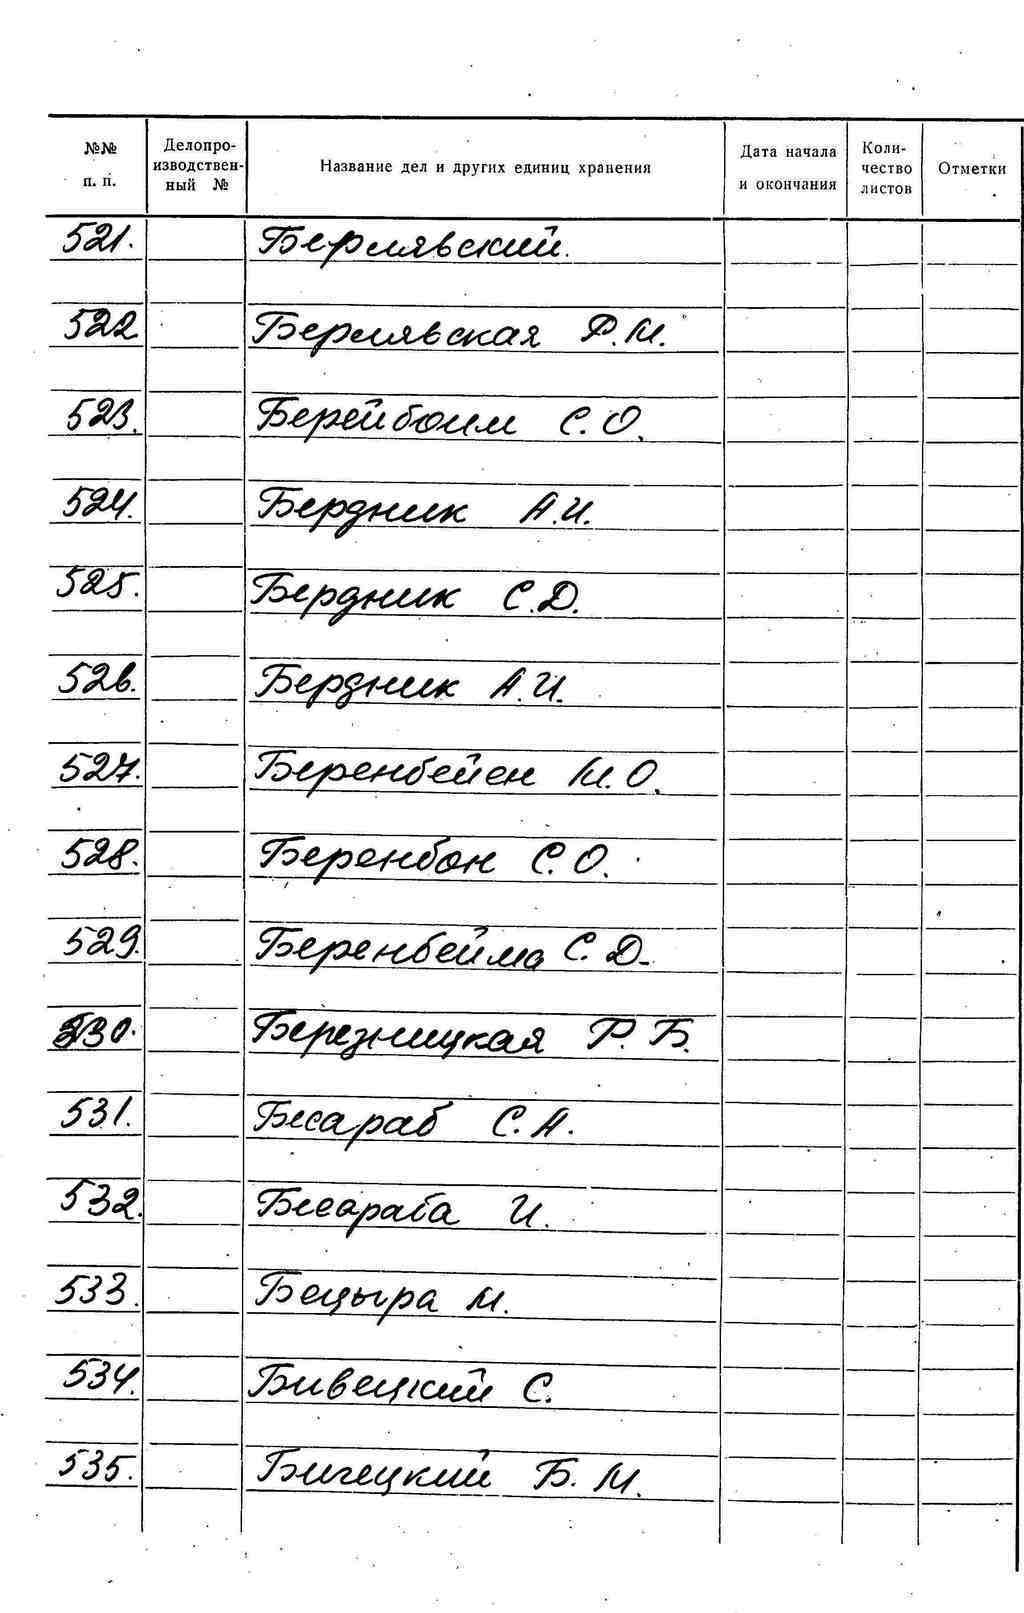 №№ п. п. Делопроизводственный № Название дел и других единиц хранения Дата начала и окончания Количество листов Отметки
521. Берлявский.
522 Берлявская Р. М.
523. Берейбоим С. О.
524. Бердник А. И.
525. Бердник С. Д.
526. Бердник А. И.
527. Беренбейен М. О.
528. Беренбон С. О.
529. Беренбейма С. Д.
530. Березницкая Р. Б.
531. Бесараб С. А.
532. Бесараба И.
533. Бецыра М.
534. Бивецкий С.
535. Бигецкий Б. М.